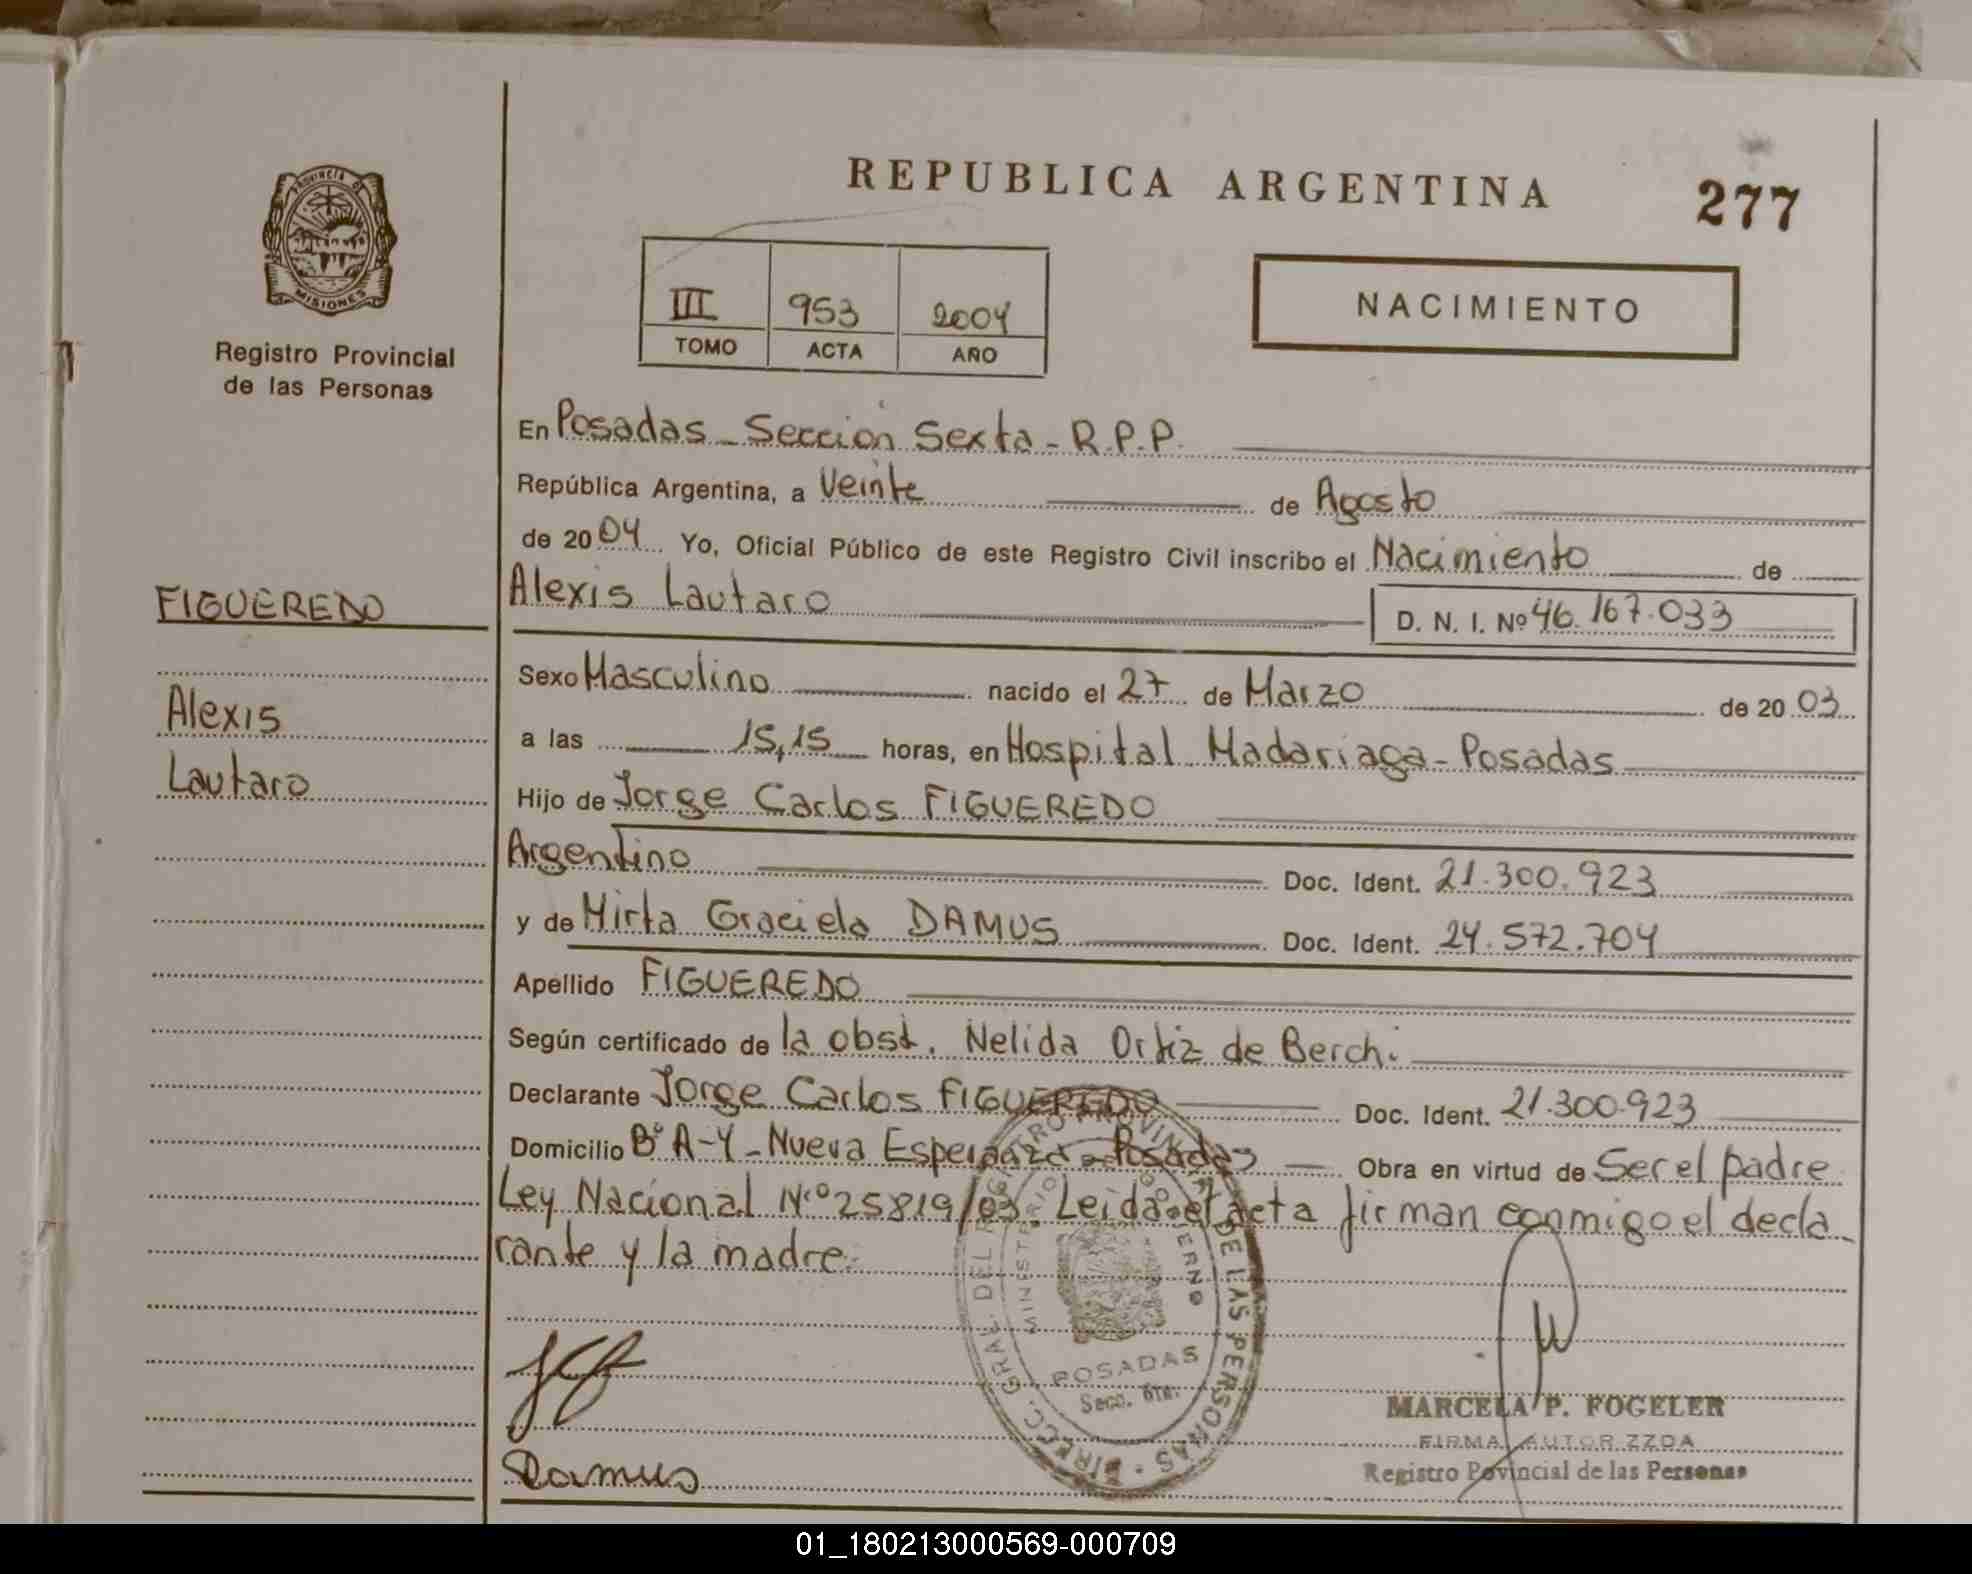 REPUBLICA ARGENTINA
277
PROVINCIA DE
MISIONES
Registro Provincial
de las Personas
III 953 2004
TOMO ACTA AÑO
NACIMIENTO
En Posadas - Sección Sexta - R.P.P.
República Argentina, a Veinte de Agosto
de 2004 Yo, Oficial Público de este Registro Civil inscribo el Nacimiento de
Alexis Lautaro D. N. I. Nº 46.167.033
FIGUEREDO
Alexis
Lautaro
Sexo Masculino nacido el 27 de Marzo de 2003
a las 15,15 horas, en Hospital Madariaga - Posadas
Hijo de Jorge Carlos FIGUEREDO
Argentino Doc. Ident. 21.300.923
y de Mirta Graciela DAMUS Doc. Ident. 24.572.704
Apellido FIGUEREDO
Según certificado de la obst. Nelida Ortiz de Berchi
Declarante Jorge Carlos FIGUEREDO Doc. Ident. 21.300.923
Domicilio Bº A-4 - Nueva Esperanza - Posadas Obra en virtud de Ser el padre
Ley Nacional Nº 25819/03. Leida el acta firman conmigo el decla
rante y la madre.
DIRECC. GRAL. DEL REGISTRO PROVINCIAL DE LAS PERSONAS
MINISTERIO GOBIERNO
POSADAS
Secc. 6ta.
Damus
MARCELA P. FOGELER
FIRMA AUTORIZZDA
Registro Povincial de las Personas
01_180213000569-000709